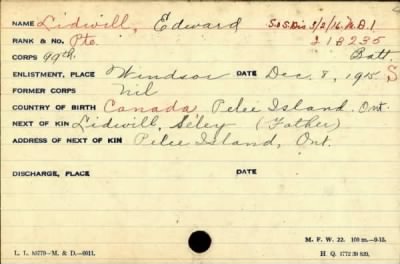 NAME Lidwill, Edward S.O.S. Dis 3/2/16 M.D.1
RANK & No. Pte. 218235
CORPS 99th. Batt.
ENLISTMENT, PLACE Windsor DATE Dec. 8, 1915 S
FORMER CORPS Nil
COUNTRY OF BIRTH Canada, Pelee Island. Ont.
NEXT OF KIN Lidwill, Seley (Father)
ADDRESS OF NEXT OF KIN Pelee Island, Ont.
DISCHARGE, PLACE DATE
L. L. 85779—M. & D.—6911.
M. F. W. 22. 100 m.—9-15.
H. Q. 1772 39 839.